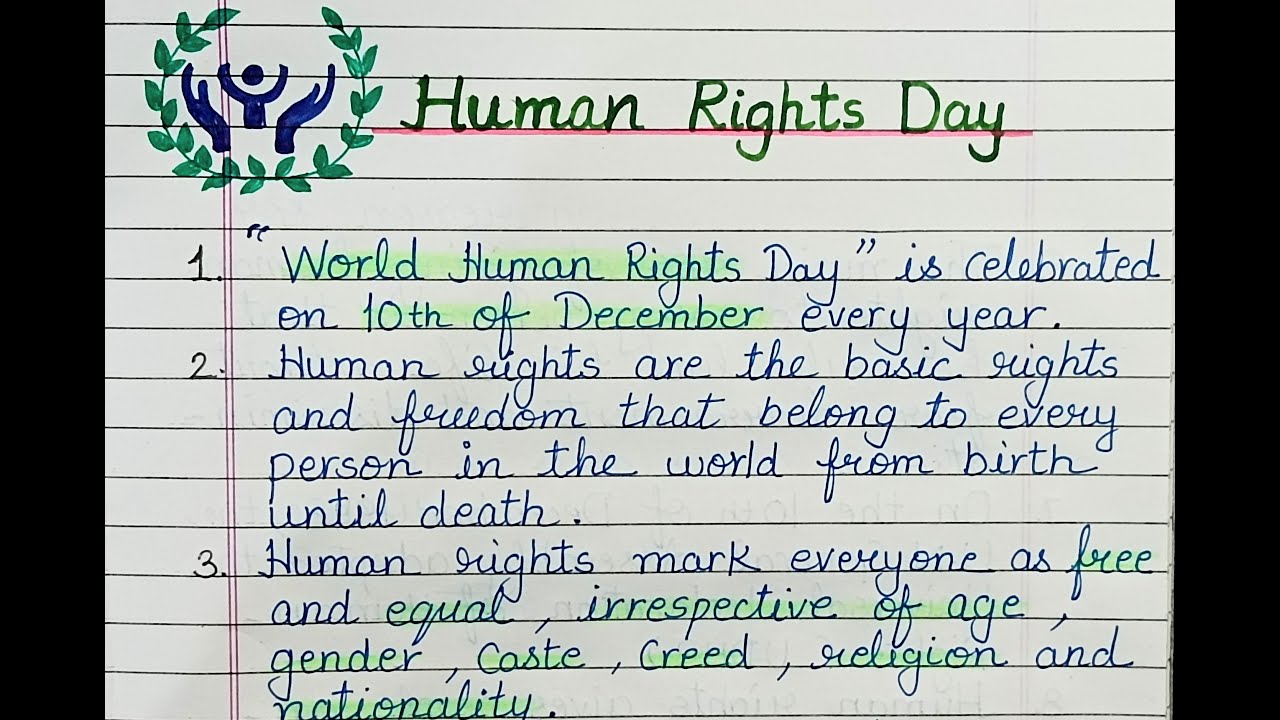 Human Rights Day
1. "World Human Rights Day" is celebrated
on 10th of December every year.
2. Human rights are the basic rights
and freedom that belong to every
person in the world from birth
until death.
3. Human rights mark everyone as free
and equal, irrespective of age,
gender, caste, creed, religion and
nationality.